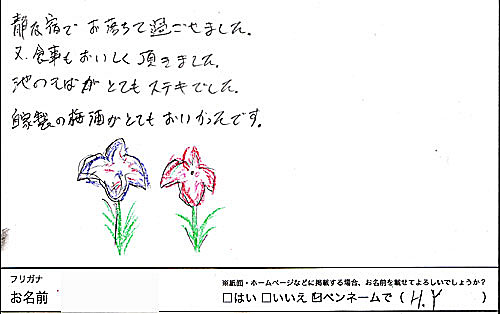 静な宿で お落ちて過ごせました。
又、食事もおいしく頂きました。
池のそばが とても ステキでした。
自家製の梅酒がとても おいかったです。
フリガナ
お名前
※紙面・ホームページなどに掲載する場合、お名前を載せてよろしいでしょうか?
□はい □いいえ ☑ペンネームで ( H.Y )